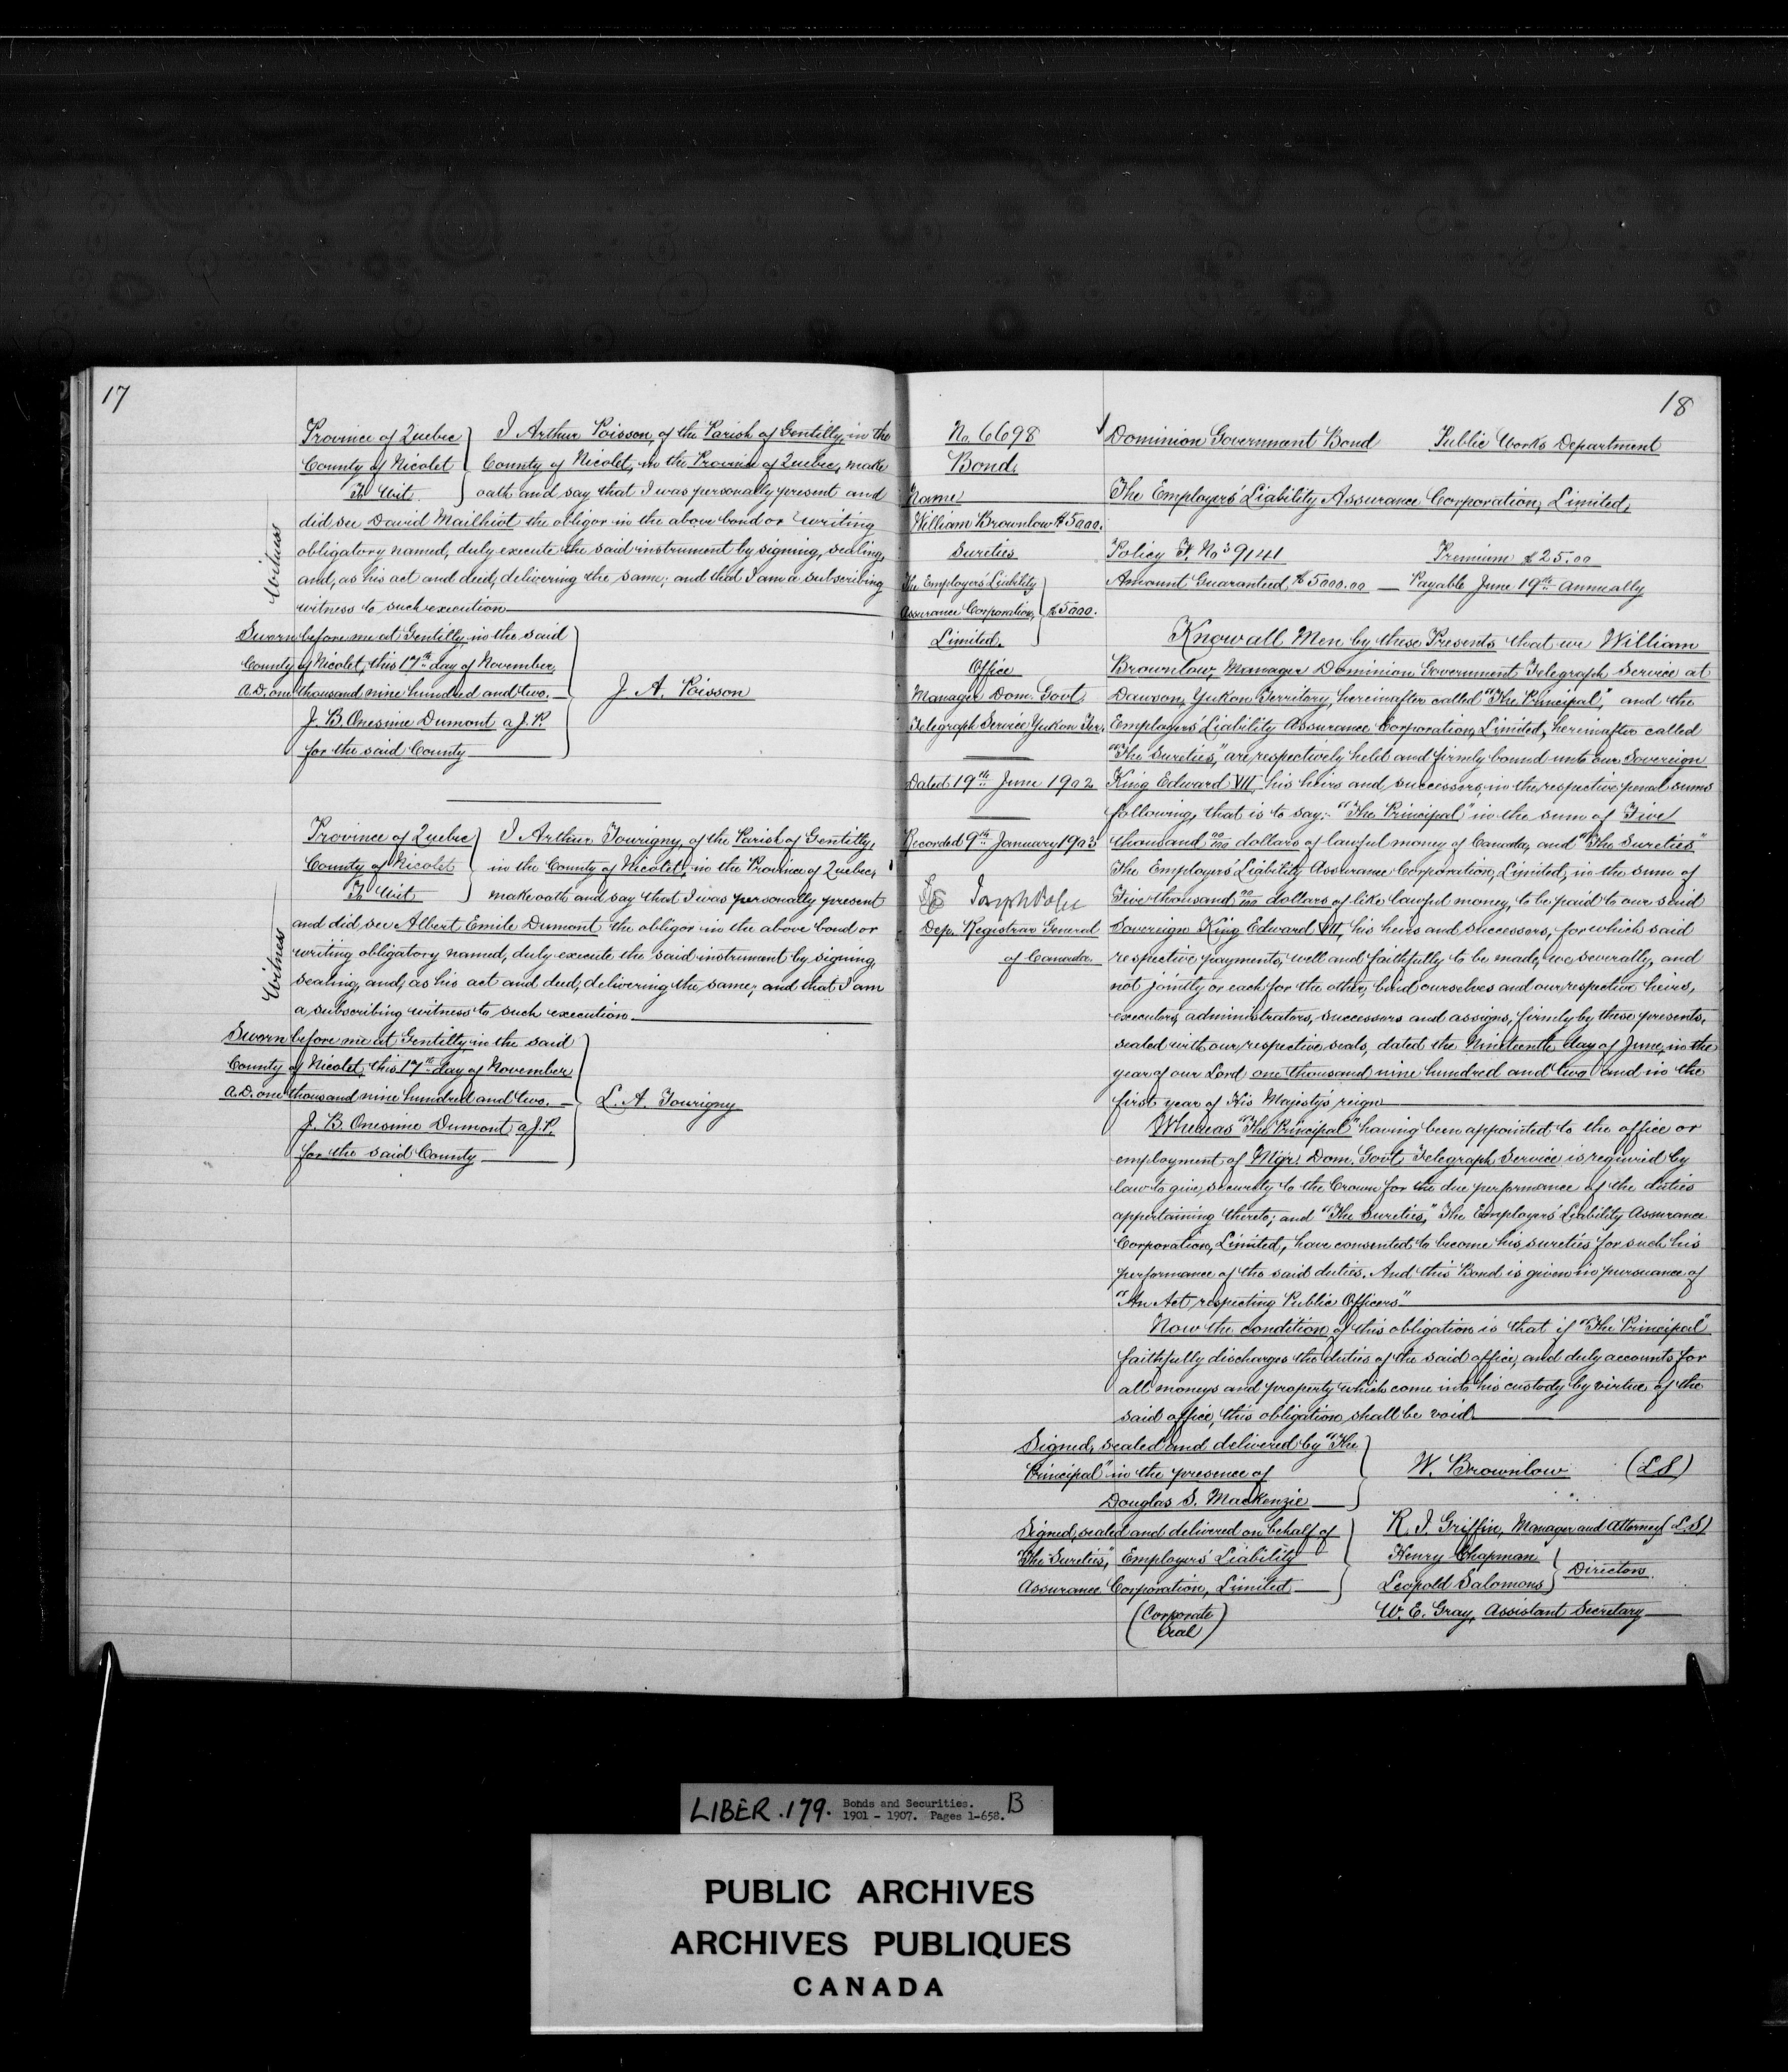 17
Province of Quebec } I Arthur Poisson, of the Parish of Gentilly, in the
County of Nicolet } County of Nicolet, in the Province of Quebec, make
To Wit } oath and say that I was personally present and
did see David Mailhiot the obligor in the above bond or writing
obligatory named, duly execute the said instrument by signing, sealing,
and, as his act and deed, delivering the same; and that I am a subscribing
witness to such execution
Witness
Sworn before me at Gentilly, in the said
County of Nicolet, this 17th day of November,
A.D. one thousand nine hundred and two.
J. B. Onesime Dumont a J.P.
for the said County
J A. Poisson
Province of Quebec } I Arthur Tourigny, of the Parish of Gentilly,
County of Nicolet } in the County of Nicolet, in the Province of Quebec,
To Wit } make oath and say that I was personally present
and did see Albert Emile Dumont the obligor in the above bond or
writing obligatory named, duly execute the said instrument by signing,
sealing, and, as his act and deed, delivering the same; and that I am
a subscribing witness to such execution.
Witness
Sworn before me at Gentilly, in the said
County of Nicolet, this 17th day of November
A.D. one thousand nine hundred and two.
J. B. Onesime Dumont a J.P.
for the said County
L. A. Tourigny
18
No. 6698
Bond.
Name
William Brownlow $5000.
Sureties
The Employers' Liability
Assurance Corporation, } $5000.
Limited.
Office
Manager Dom. Govt.
Telegraph Service Yukon Ter.
Dated 19th June 1902
Recorded 9th January 1903
Joseph Pope
Dep. Registrar General
of Canada.
Dominion Government Bond Public Works Department
The Employers' Liability Assurance Corporation, Limited,
Policy F. No 39141 Premium $25.00
Amount Guaranteed $5000.00 — Payable June 19th annually
Know all Men by these Presents that we William
Brownlow, Manager Dominion Government Telegraph Service at
Dawson, Yukon Territory, hereinafter called "The Principal", and the
Employers' Liability Assurance Corporation, Limited, hereinafter called
"The Sureties," are respectively held and firmly bound unto Our Sovereign
King Edward VII, his heirs and successors, in the respective penal sums
following, that is to say:- "The Principal" in the sum of Five
thousand 00/100 dollars of lawful money of Canada, and "The Sureties"
The Employers' Liability Assurance Corporation, Limited, in the sum of
Five thousand 00/100 dollars of like lawful money, to be paid to our said
Sovereign King Edward VII, his heirs and successors, for which said
respective payments, well and faithfully to be made, we severally, and
not jointly or each for the other, bind ourselves and our respective heirs,
executors, administrators, successors and assigns, firmly by these presents,
sealed with our respective seals, dated the Nineteenth day of June, in the
year of our Lord one thousand nine hundred and two and in the
first year of His Majesty's reign
Whereas "The Principal" having been appointed to the office or
employment of Mgr. Dom. Govt. Telegraph Service is required by
law to give security to the Crown for the due performance of the duties
appertaining thereto; and "The Sureties," The Employers' Liability Assurance
Corporation, Limited, have consented to become his sureties for such his
performance of the said duties. And this Bond is given in pursuance of
"An Act respecting Public Officers"
Now the condition of this obligation is that if "The Principal"
faithfully discharges the duties of the said office, and duly accounts for
all moneys and property which come into his custody by virtue of the
said office, this obligation shall be void.
Signed, sealed and delivered by "The
Principal" in the presence of
Douglas S. Mackenzie
W. Brownlow (LS)
Signed, sealed and delivered on behalf of
"The Sureties," Employers' Liability
Assurance Corporation, Limited
(Corporate Seal)
R. J. Griffin, Manager and Attorney (L.S)
Henry Chapman
Leopold Salomons } Directors.
W. E. Gray, Assistant Secretary
LIBER .179. Bonds and Securities. B
1901 - 1907. Pages 1-658.
PUBLIC ARCHIVES
ARCHIVES PUBLIQUES
CANADA